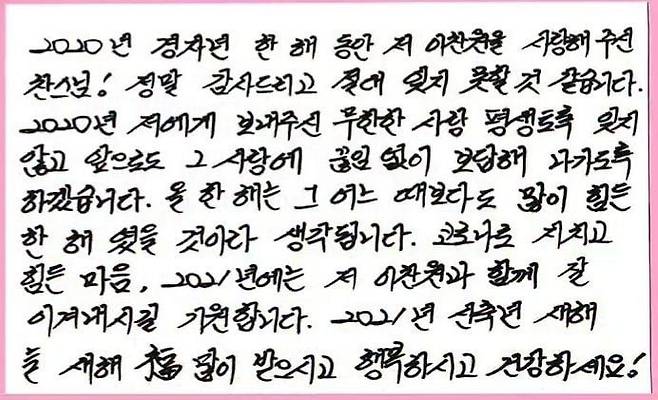 2020년 경자년 한 해 동안 저 이찬원을 사랑해 주신
찬스님! 정말 감사드리고 절대 잊지 못할 것 같습니다.
2020년 저에게 보내주신 무한한 사랑 평생토록 잊지
않고 앞으로도 그 사랑에 끊임 없이 보답해 나가도록
하겠습니다. 올 한 해는 그 어느 때보다도 많이 힘든
한 해 였을 것이라 생각됩니다. 코로나로 지치고
힘든 마음, 2021년에는 저 이찬원과 함께 잘
이겨내시길 기원합니다. 2021년 신축년 새해
늘 새해 福 많이 받으시고 행복하시고 건강하세요!